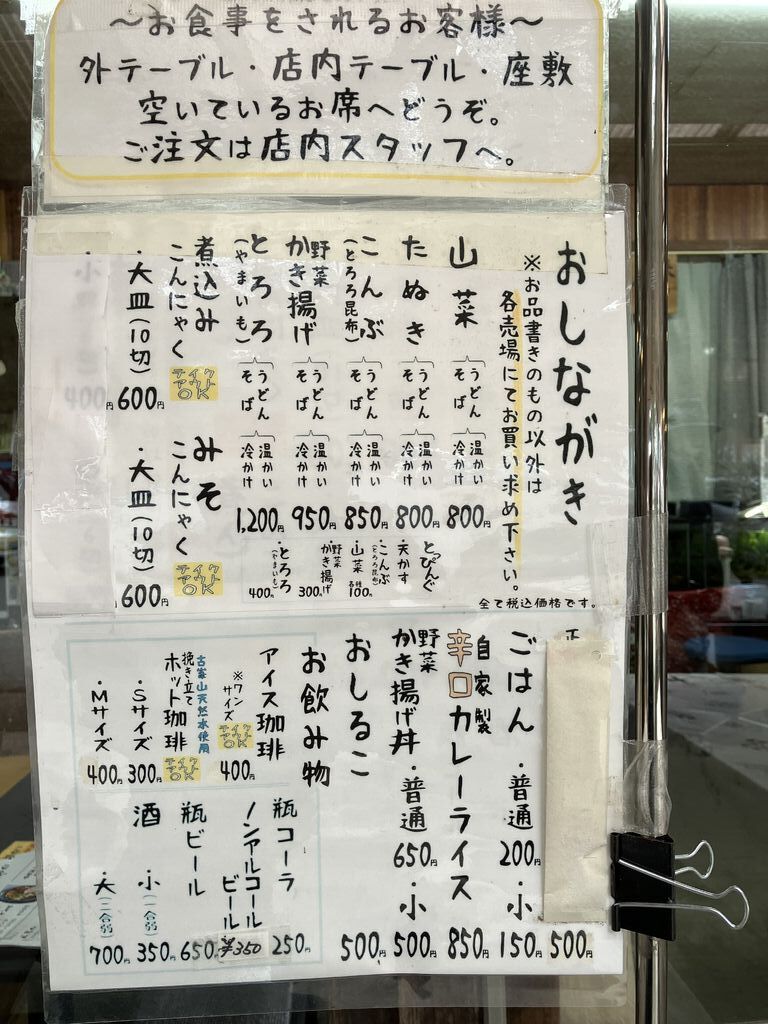 ～お食事をされるお客様～
外テーブル・店内テーブル・座敷
空いているお席へどうぞ。
ご注文は店内スタッフへ。
おしながき
※お品書きのもの以外は
各売場にてお買い求め下さい。
山菜 うどん そば 温かい 冷かけ 800円
たぬき うどん そば 温かい 冷かけ 800円
こんぶ (とろろ昆布) うどん そば 温かい 冷かけ 850円
野菜かき揚げ うどん そば 温かい 冷かけ 950円
とろろ (やまいも) うどん そば 温かい 冷かけ 1,200円
とっぴんぐ
・天かす
・こんぶ (とろろ昆布)
・山菜 各種100円
・野菜かき揚げ 300円
・とろろ (やまいも) 400円
煮込みこんにゃく テイクアウトOK
・大皿(10切) 600円
みそこんにゃく テイクアウトOK
・大皿(10切) 600円
・小
400円
全て税込価格です。
500円
ごはん ・普通 200円 ・小 150円
自家製辛口カレーライス 850円
野菜かき揚げ丼 ・普通 650円 ・小 500円
おしるこ 500円
お飲み物
アイス珈琲
※ワンサイズ テイクアウトOK 400円
挽き立てホット珈琲 テイクアウトOK
・Sサイズ 300円
・Mサイズ 400円
瓶コーラ 250円
ノンアルコールビール ¥350
瓶ビール 650円
酒 ・小(一合弱) 350円
・大(二合弱) 700円